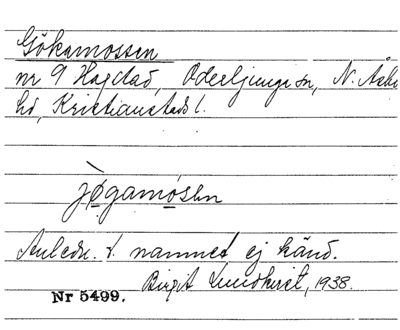 Gökamossen
nr 9 Hagstad, Oderljunga sn, N. Åsbo
hd, Kristianstads l.
jøgamosen
Anledn. t. namnet ej känd.
Birgit Lundkvist, 1938.
Nr 5499.